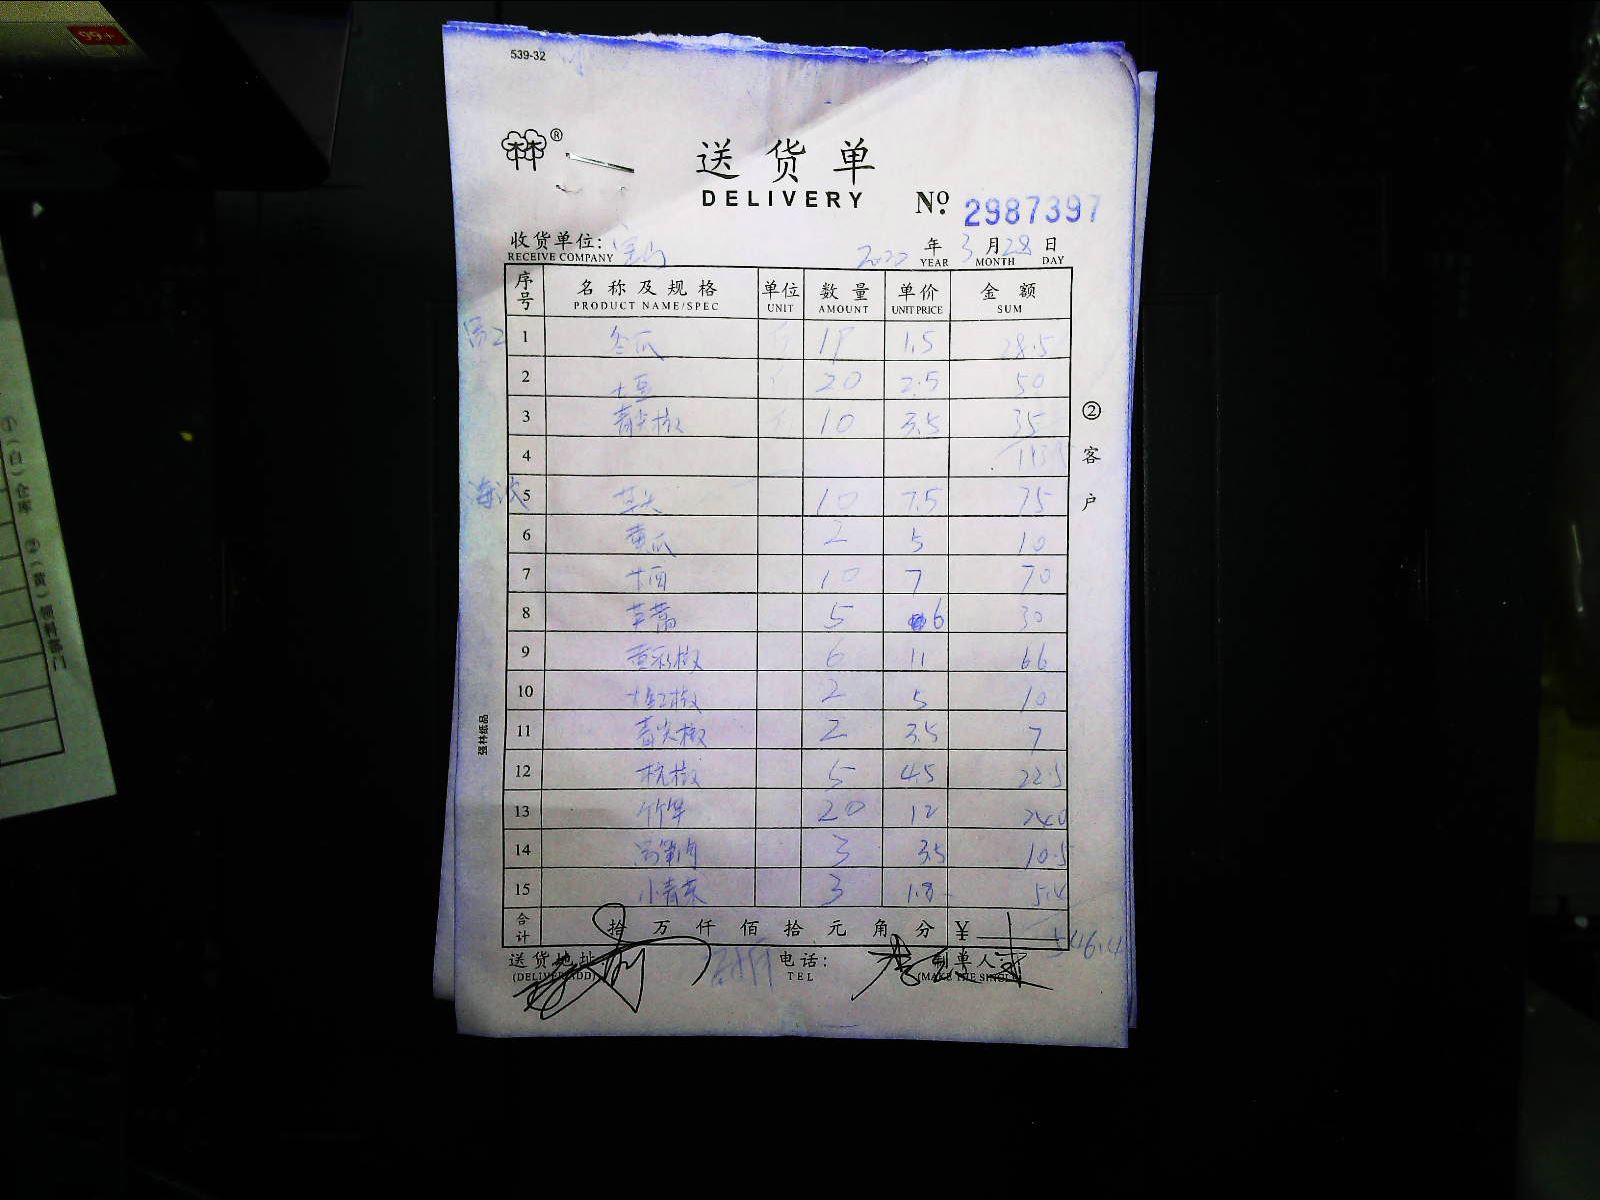 99+
539-32
林林®
送货单
DELIVERY
№ 2987397
收货单位: 宝山 2022 年 3 月 28 日
RECEIVE COMPANY YEAR MONTH DAY
序号 名称及规格 单位 数量 单价 金额
PRODUCT NAME/SPEC UNIT AMOUNT UNIT PRICE SUM
1 冬瓜 斤 19 1.5 28.5
2 土豆 斤 20 2.5 50
3 青尖椒 斤 10 3.5 35
4 113.5
5 草头 10 7.5 75
6 黄瓜 2 5 10
7 10 7 70
8 5 6 30
9 黄彩椒 6 11 66
10 2 5 10
11 青尖椒 2 3.5 7
12 杭椒 5 4.5 22.5
13 20 12 240
14 3 3.5 10.5
15 小青菜 3 1.8 5.4
合计 拾 万 仟 佰 拾 元 角 分 ¥ 546.4
送货地址 电话: 制单人
(DELIVER ADD) TEL (MAKE THE SINGLE)
② 客户
强林纸品
①(白)仓库 ②(黄)